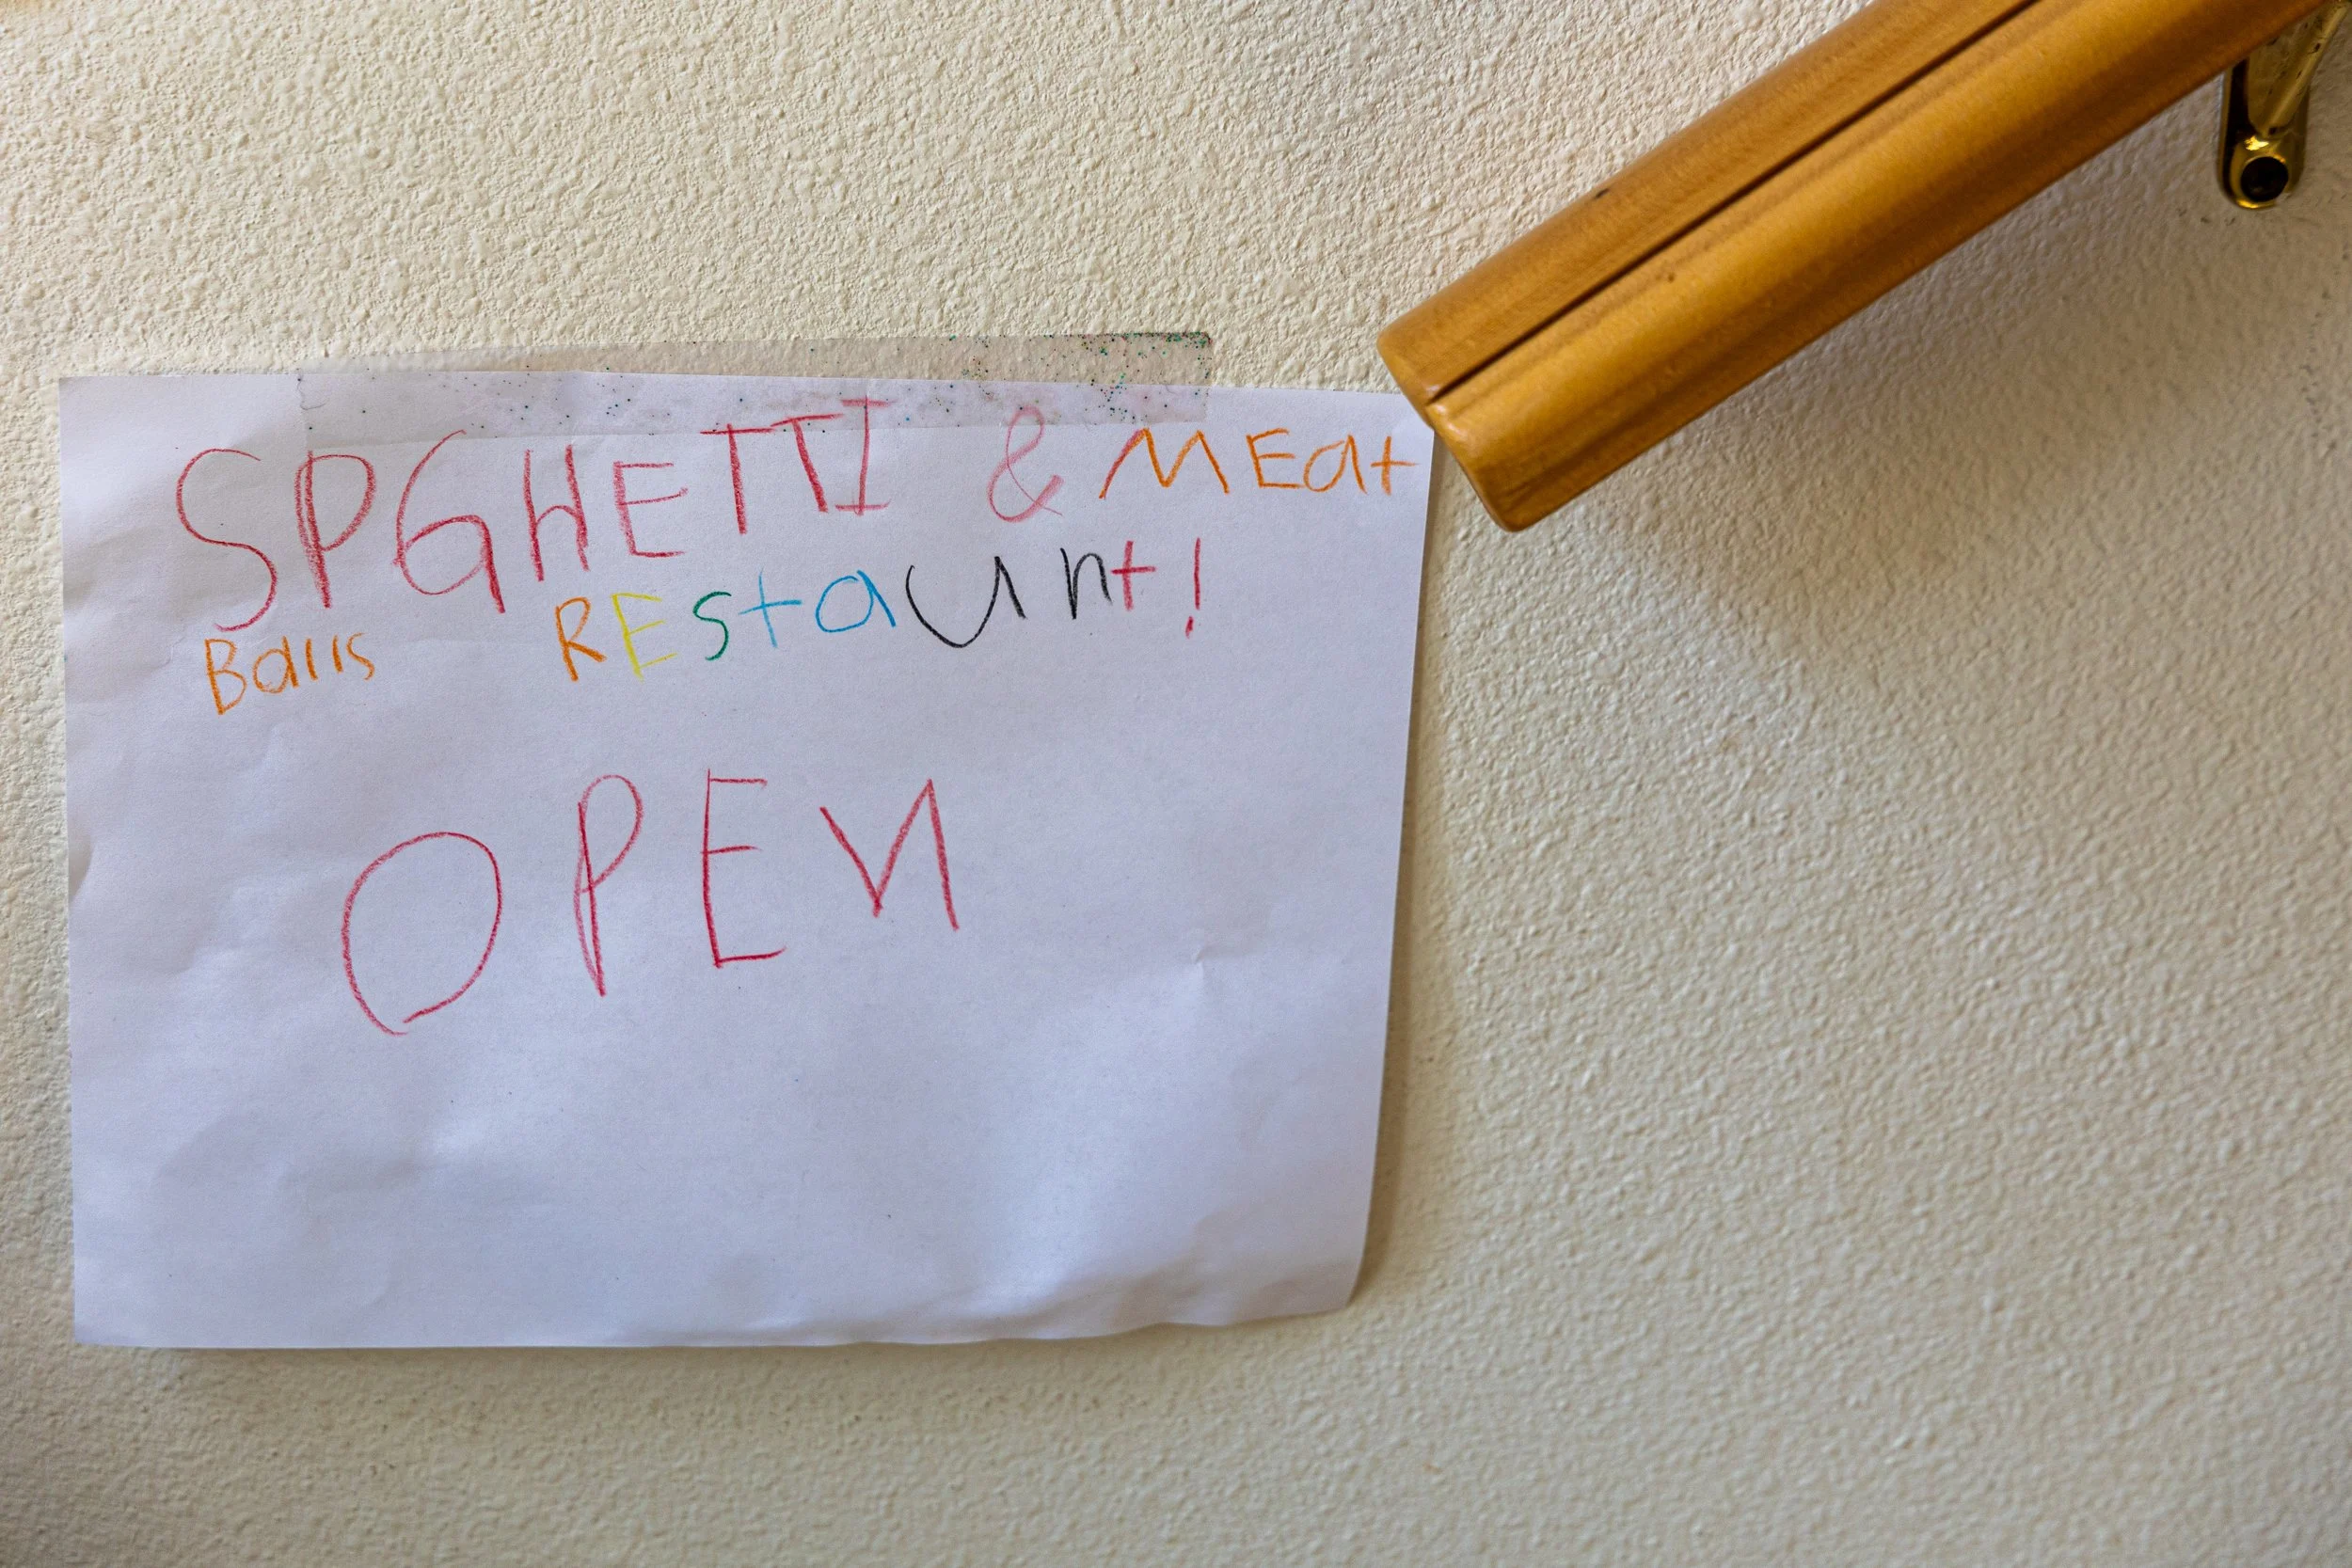 SPGHETTI & MEat
Balls REStaunt!
OPEN